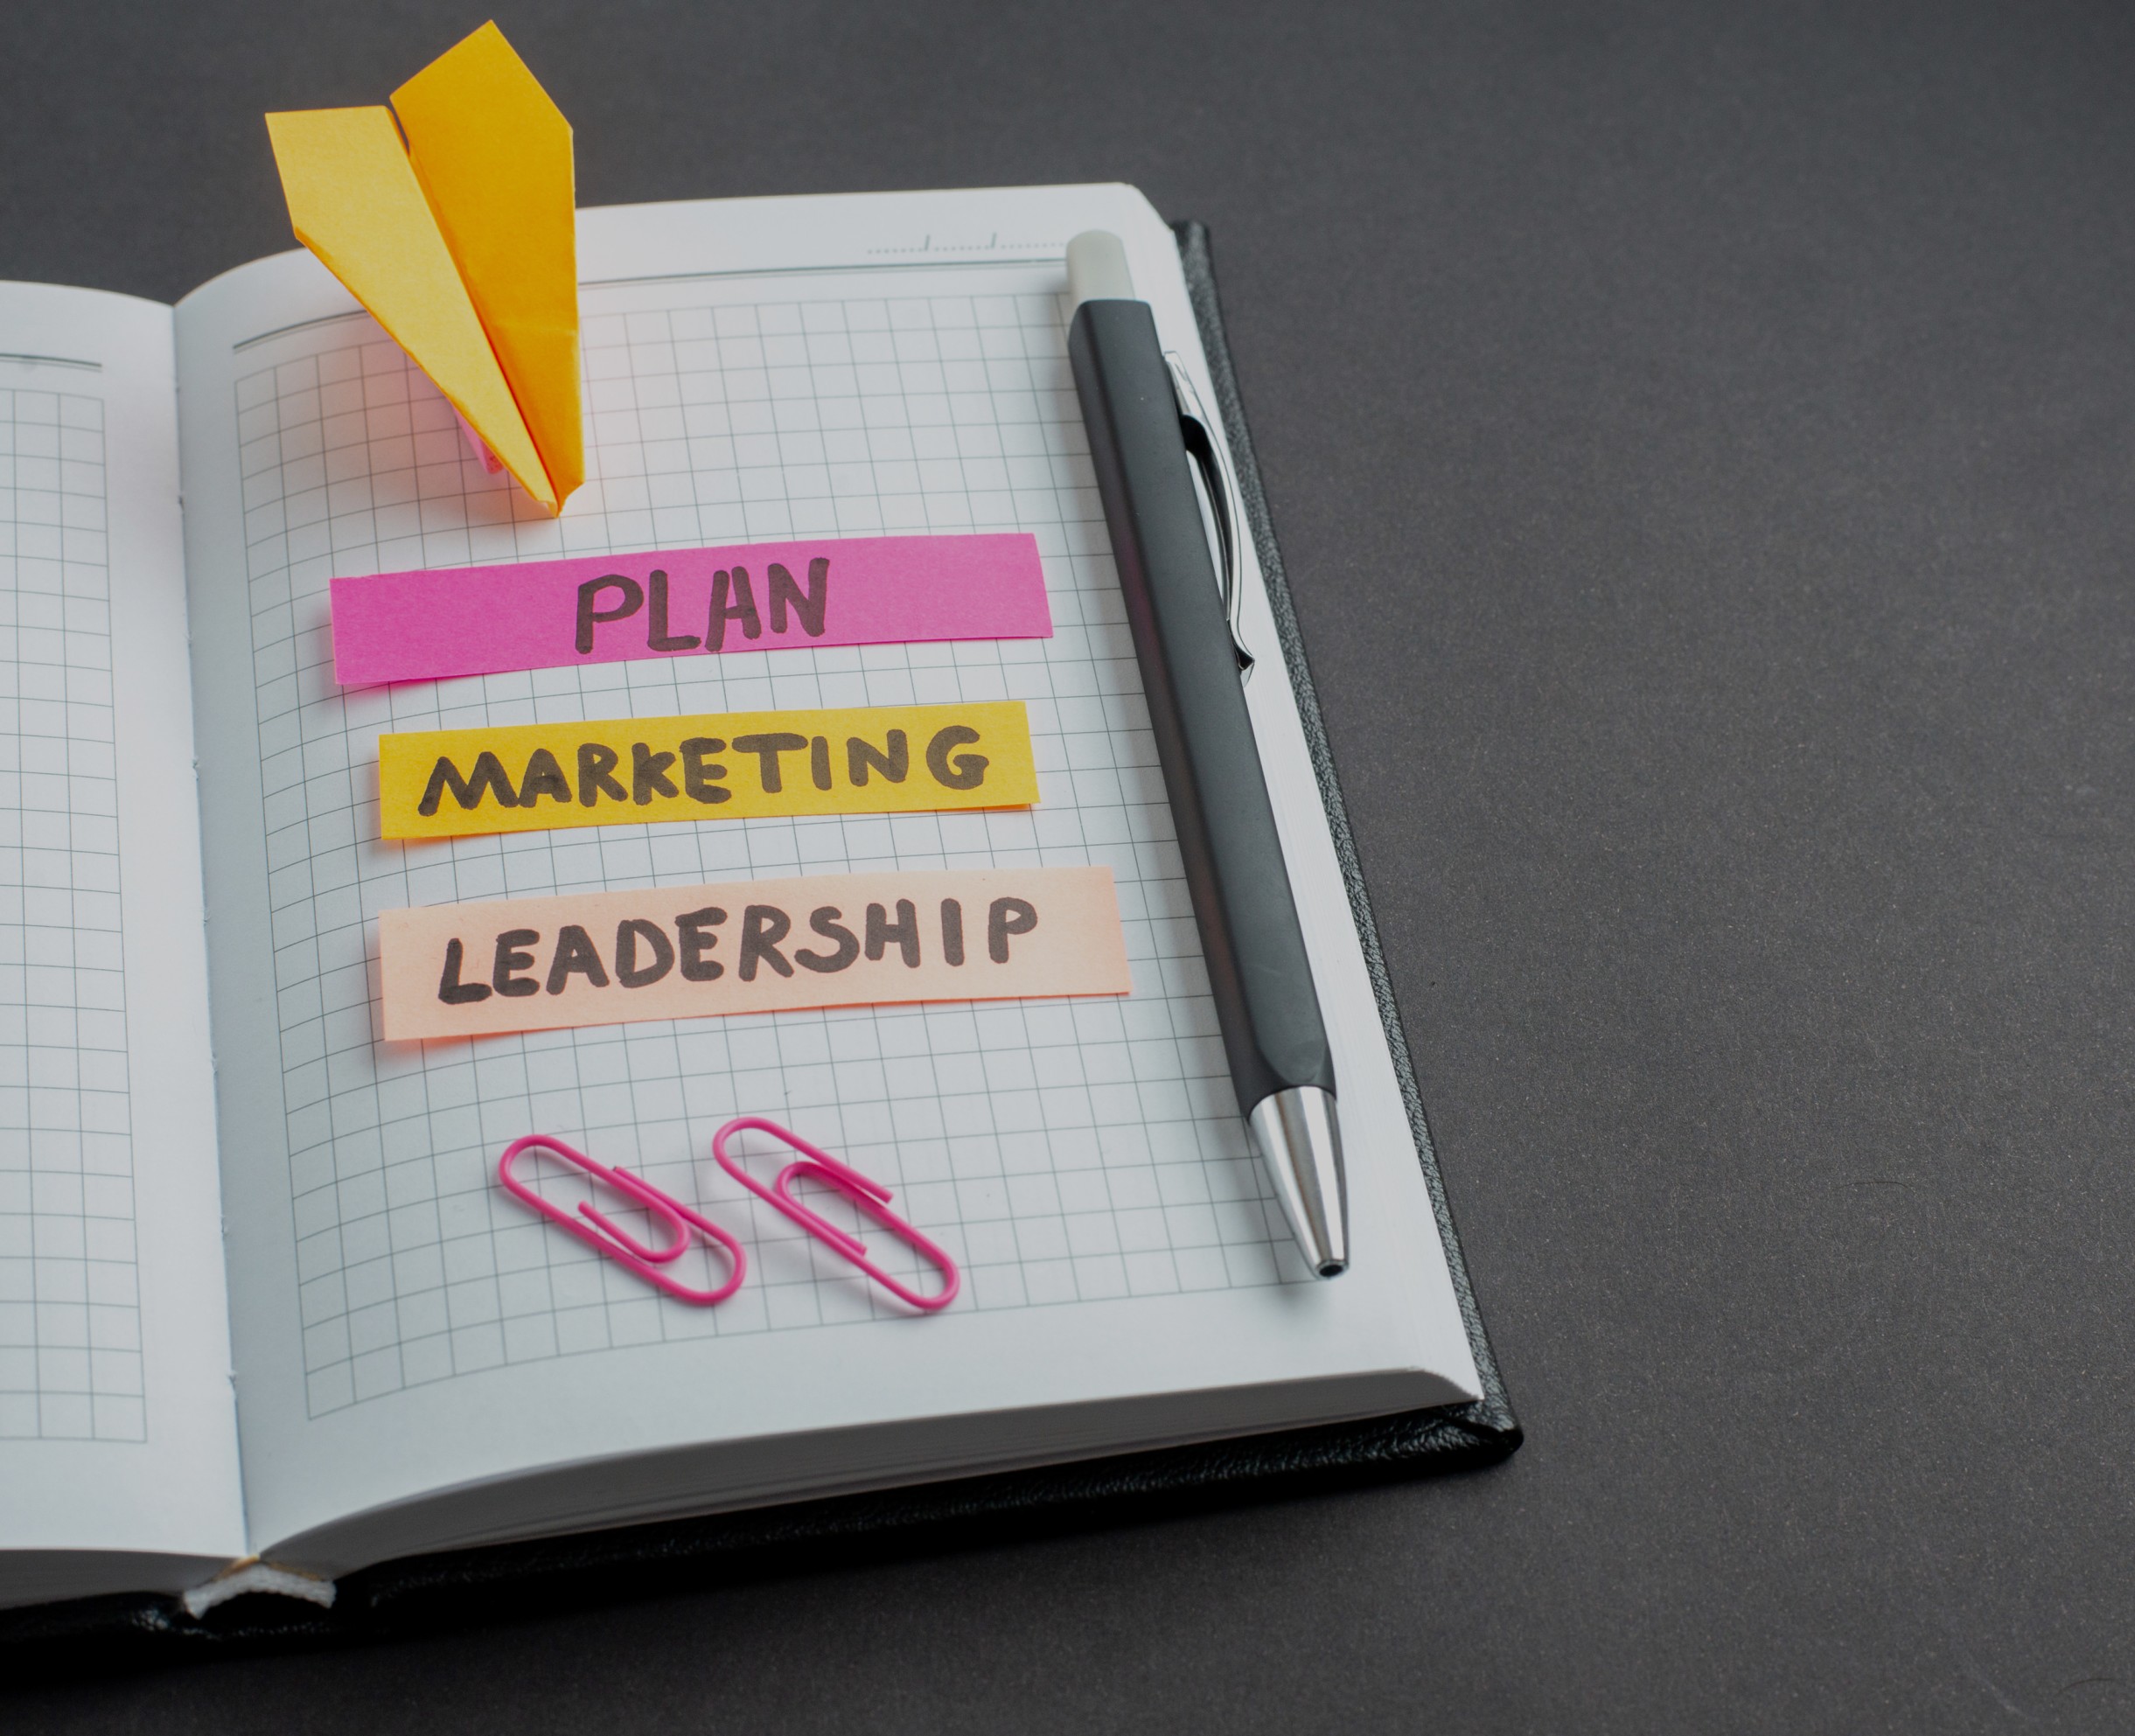 PLAN
MARKETING
LEADERSHIP